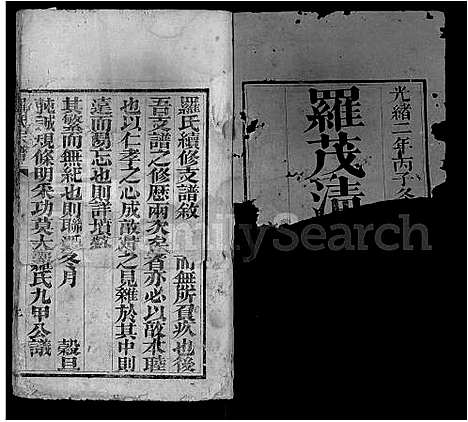 光緒二年丙子冬
羅茂清
羅氏續修支譜敘
而無所負疚也後
吾支譜之修歷兩次矣
者亦必以敬宗睦
也以仁孝之心成敬
之見雜於其中則
遠而易忘也則詳墳
其繁而無紀也則聯
冬月
穀旦
誠規條明采功莫大
羅氏九甲公議
FamilySearch